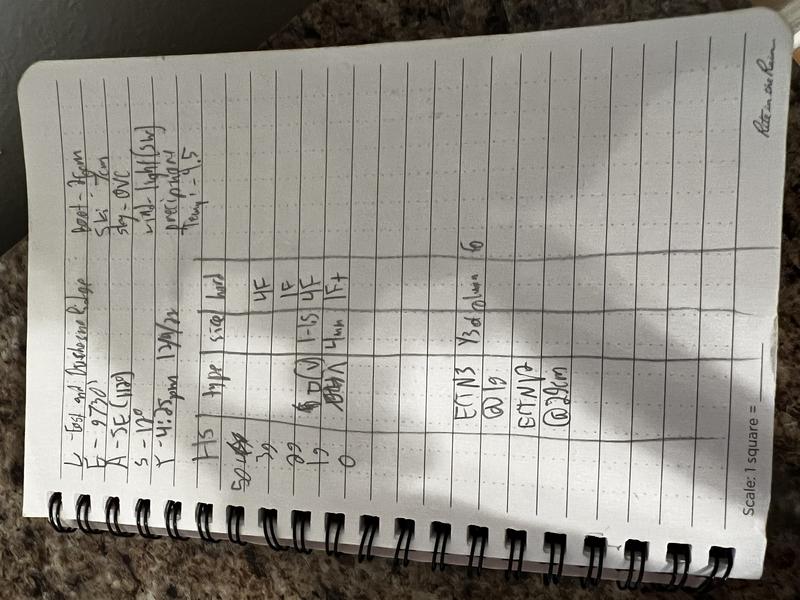 L - East end Duchesne Ridge
E - 9730'
A - SE (112°)
S - 12°
T - 4:25pm 12/9/22
boot - 26cm
ski - 7cm
sky - OVC
wind - light (SW)
precip
Temp: -4.5
HS type size hard
50
39 4F
29 □ (V) 1-1.5 4F
19 ∧ 4mm 1F+
0
ECTN3 Y3d down 6
@19
ECTN12
@29cm
Scale: 1 square =
Rite in the Rain